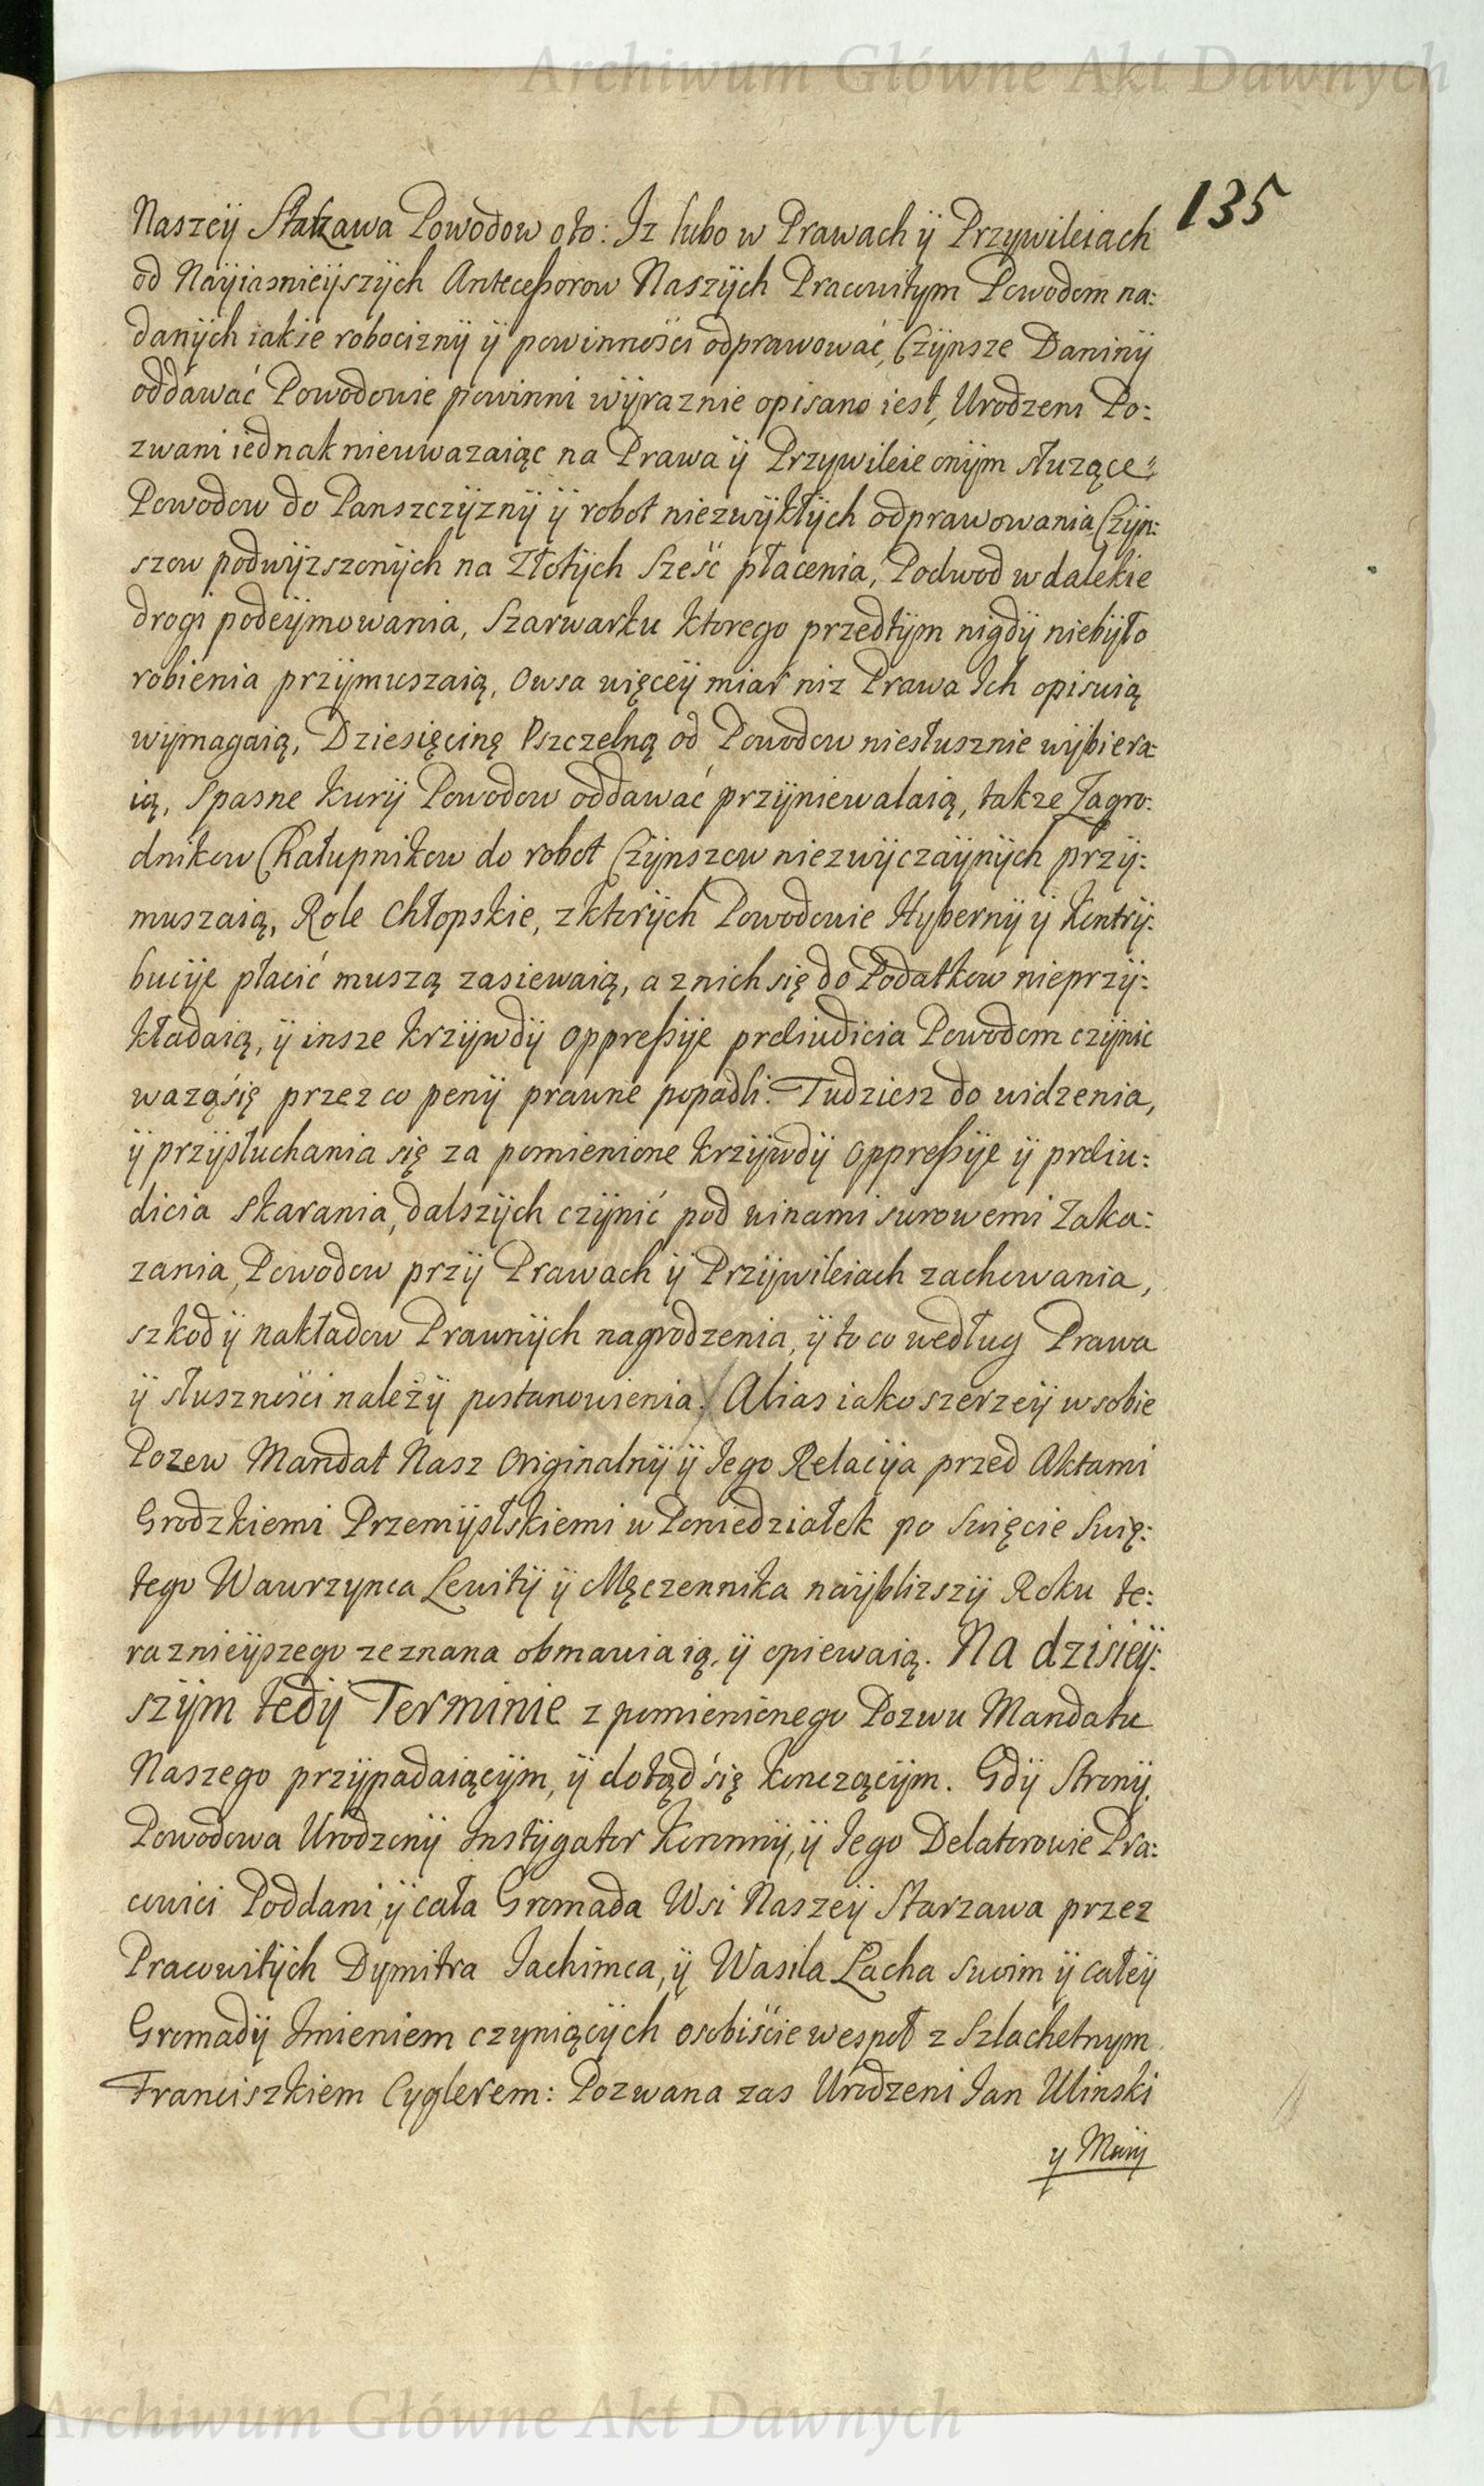 Archiwum Główne Akt Dawnych
135
Naszeÿ Starzawa Powodow oto: Iz lubo w Prawach ÿ Przywileiach
od Naÿiasnieÿszÿch Anteceßorow Naszÿch Pracowitym Powodom na:
danÿch iakie robociznÿ ÿ powinnosci odprawować, Czÿnsze Daninÿ
oddawać Powodowie powinni wÿraznie opisano iest, Urodzeni Po:
zwani iednak nieuwazaiąc na Prawa ÿ Przywileie onÿm słuzące
Powodow do Panszczÿznÿ ÿ robot niezwÿkłÿch odprawowania Czÿn:
szow podwÿzszonÿch na Złotÿch Sześć płacenia, Podwod w dalekie
drogi podeÿmowania, Szarwarku ktorego przedtÿm nigdÿ niebÿło
robienia przÿmuszaią, Owsa więceÿ miar niz Prawa Ich opisuią
wÿmagaią, Dziesięcinę Pszczelną od Powodow niesłusznie wÿbiera:
ią, Spasne kurÿ Powodow oddawać przÿniewalaią, takze Zagro:
dnikow Chałupnikow do robot Czÿnszow niezwÿczaÿnÿch przÿ:
muszaią, Role Chłopskie, z ktorÿch Powodowie Hybernÿ ÿ Kontrÿ:
bucÿe płacić muszą zasiewaią, a z nich się do Podatkow nieprzÿ:
kładaią, ÿ insze krzÿwdÿ oppreßÿe preiudicia Powodom czÿnic
wazą się przez co penÿ prawne popadli. Tudziesz do widzenia,
ÿ przÿsłuchania się za pomienione krzÿwdÿ oppreßÿe ÿ preiu:
dicia skarania, dalszÿch czÿnić pod winami surowemi Zaka:
zania, Powodow przÿ Prawach ÿ Przÿwileiach zachowania,
szkod ÿ nakładow Prawnÿch nagrodzenia, ÿ to co według Prawa
ÿ słusznosci należÿ postanowienia. Alias iako szerzeÿ w sobie
Pozew Mandat Nasz Originalnÿ ÿ Iego Relacÿa przed Aktami
Grodzkiemi Przemÿslskiemi w Poniedziałek po Swięcie Swię:
tego Wawrzynca Lewitÿ ÿ Męczennika naÿblizszÿ Roku te:
raznieÿszego zeznana obmawiaią, ÿ opiewaią. Na dzisieÿ:
szÿm tedÿ Terminie z pomienionego Pozwu Mandatu
Naszego przÿpadaiącÿm, ÿ dotąd się konczącÿm. Gdÿ Stronÿ
Powodowa Urodzonÿ Instÿgator Koronnÿ, ÿ Iego Delatorowie Pra:
cowici Poddani, ÿ cała Gromada Wsi Naszeÿ Starzawa przez
Pracowitÿch Dymitra Iachimca, ÿ Wasila Lacha Swim ÿ całeÿ
Gromadÿ Imieniem czyniącÿch osobiście wespoł z Szlachetnym
Franciszkiem Cyglerem: Pozwana zas Urodzeni Ian Ulinski
y Marÿ
Archiwum Główne Akt Dawnych